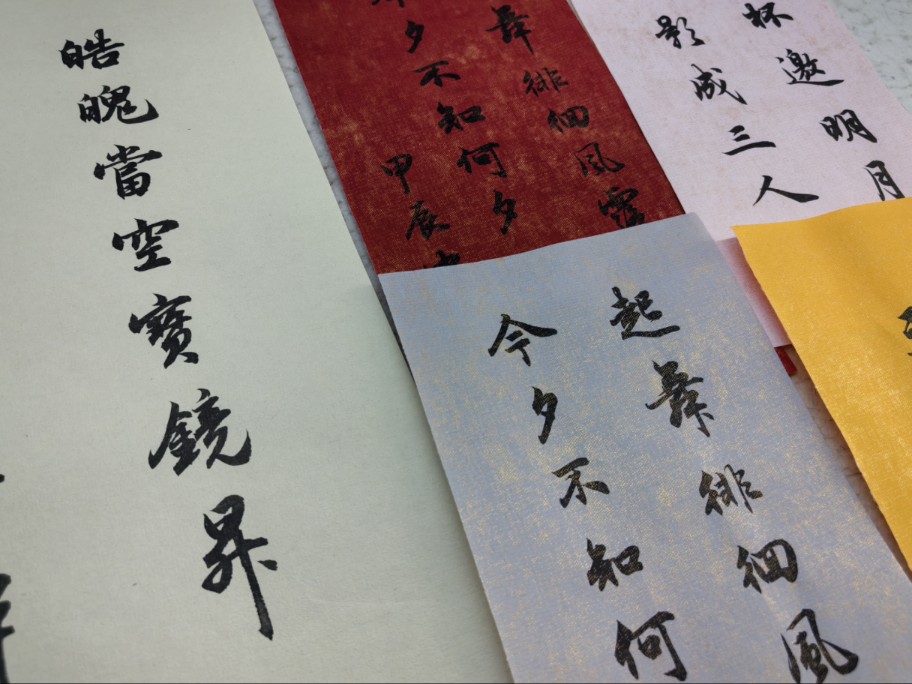 皓魄當空寶鏡昇
舞徘徊風露
夕不知何夕
甲辰
杯邀明月
影成三人
起舞徘徊風
今夕不知何